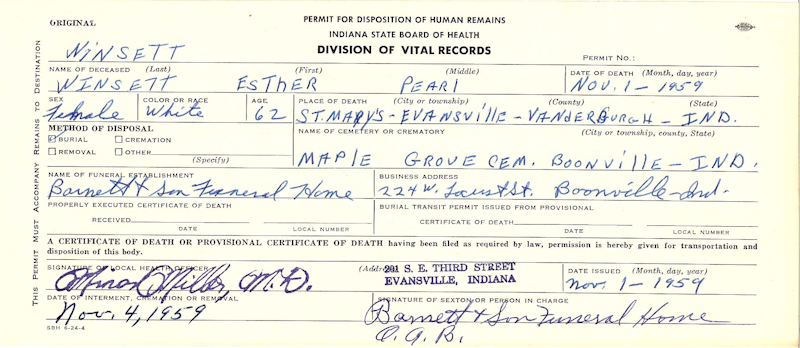 ORIGINAL
PERMIT FOR DISPOSITION OF HUMAN REMAINS
INDIANA STATE BOARD OF HEALTH
DIVISION OF VITAL RECORDS
WINSETT
PERMIT No.:
THIS PERMIT MUST ACCOMPANY REMAINS TO DESTINATION
NAME OF DECEASED (Last) (First) (Middle) DATE OF DEATH (Month, day, year)
WINSETT ESTHER PEARL NOV. 1 - 1959
SEX COLOR OR RACE AGE PLACE OF DEATH (City or township) (County) (State)
Female White 62 ST. MARYS - EVANSVILLE - VANDERBURGH - IND.
METHOD OF DISPOSAL NAME OF CEMETERY OR CREMATORY (City or township, county, State)
BURIAL CREMATION
REMOVAL OTHER
(Specify)
MAPLE GROVE CEM. BOONVILLE - IND.
NAME OF FUNERAL ESTABLISHMENT BUSINESS ADDRESS
Barnett & Son Funeral Home 224 W. Locust St. Boonville - Ind.
PROPERLY EXECUTED CERTIFICATE OF DEATH BURIAL TRANSIT PERMIT ISSUED FROM PROVISIONAL
RECEIVED CERTIFICATE OF DEATH
DATE LOCAL NUMBER DATE LOCAL NUMBER
A CERTIFICATE OF DEATH OR PROVISIONAL CERTIFICATE OF DEATH having been filed as required by law, permission is hereby given for transportation and
disposition of this body.
SIGNATURE OF LOCAL HEALTH OFFICER (Address) 201 S. E. THIRD STREET DATE ISSUED (Month, day, year)
Miller, M.D. EVANSVILLE, INDIANA Nov. 1 - 1959
DATE OF INTERMENT, CREMATION OR REMOVAL SIGNATURE OF SEXTON OR PERSON IN CHARGE
Nov. 4, 1959 Barnett & Son Funeral Home
O.G.B.
SBH 6-24-4